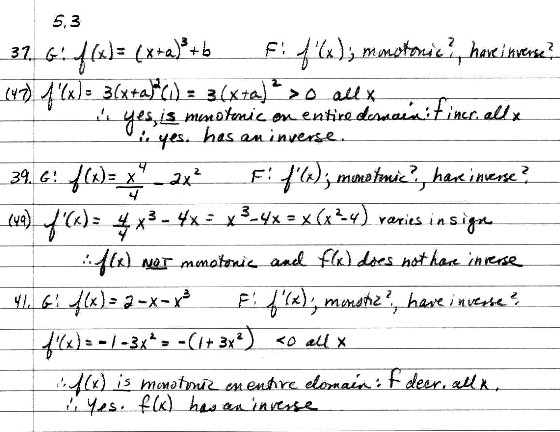 5.3
37. G: f(x) = (x+a)³+b F: f'(x); monotonic?, have inverse?
(47) f'(x) = 3(x+a)²(1) = 3(x+a)² > 0 all x
∴ yes, is monotonic on entire domain: f incr. all x
∴ yes. has an inverse.
39. G: f(x) = x⁴/4 - 2x² F: f'(x); monotonic?, have inverse?
(49) f'(x) = 4/4 x³ - 4x = x³-4x = x(x²-4) varies in sign
∴ f(x) NOT monotonic and f(x) does not have inverse
41. G: f(x) = 2-x-x³ F: f'(x); monotic?, have inverse?
f'(x) = -1-3x² = -(1+3x²) <0 all x
∴ f(x) is monotonic on entire domain: f decr. all x.
∴ Yes. f(x) has an inverse